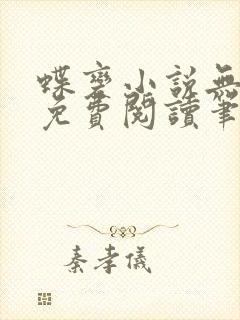 蝶變小說無
免費閱讀筆
秦孝儀